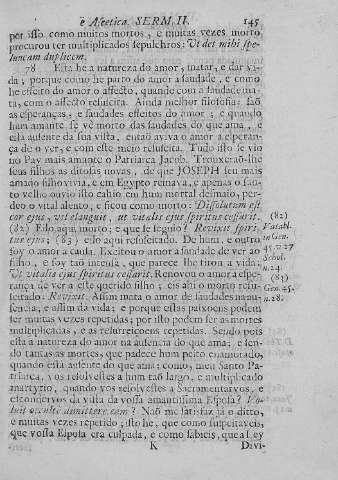 e Ascetica. SERM. II. 145
por isso como muitos mortos, e muitas vezes morto
procurou ter multiplicados sepulchros: Ut det mihi spe-
luncam duplicem.
78 Esta he a natureza do amor, matar, e dar vi-
da; porque como he parto do amor a saudade, e como
he effeito do amor o affecto, quando com a saudade ma-
ta, com o affecto resuscita. Ainda melhor filosofia: saõ
as esperanças, e saudades effeitos do amor; e quando
hum amante se vê morto das saudades do que ama, e
està ausente da sua vista, entaõ aviva o amor a esperan-
ça de o ver, e com este meio resuscita. Tudo isto se vio
no Pay mais amante o Patriarca Jacob. Trouxeraõ-lhe
seus filhos as ditosas novas, de que JOSEPH seu mais
amado filho vivia, e em Egypto reinava, e apenas o san-
to velho ouvio isto cahio em hum mortal desmaio, per-
deo o vital alento, e ficou como morto: Dissolutum est
cor ejus, vel elanguit, ut vitalis ejus spiritus cessarit. (82)
(82) Eilo aqui morto; e que se seguio? Revixit spiri- Vatabl.
tus ejus; (83) eilo aqui resuscitado. De hum, e outro in Gen.
foy o amor a causa. Excitou o amor a saudade de ver ao 45. v. 27
filho, e foy taõ intensa, que parece lhe tirou a vida: Schol.
Ut vitalis ejus spiritus cessarit. Renovou o amor a espe- n. 24.
rança de ver a este querido filho; eis ahi o morto resu- (83)
scitado: Revixit. Assim mata o amor de saudades na au- Gen. 45.
sencia, e assim da vida; e porque estas paixoens podem n. 28.
ser muitas vezes repetidas; por isso podem ser as mortes
multiplicadas, e as resurreicoens repetidas. Sendo pois
esta a natureza do amor na ausencia do que ama; e sen-
do tantas as mortes, que padece hum peito enamorado,
quando està ausente do que ama: como, meu Santo Pa-
triarca, vos resolvestes a hum taõ largo, e multiplicado
martyrio, quando vos resolvestes a Sacramentarvos, e
escondervos da vista da vossa amantissima Esposa? Vo-
luit occulte dimittere eam? Naõ me satisfaz já o ditto,
e muitas vezes repetido; isto he, que como suspeitaveis,
que vossa Esposa era culpada, e como sabieis, que a Ley
K Divi-